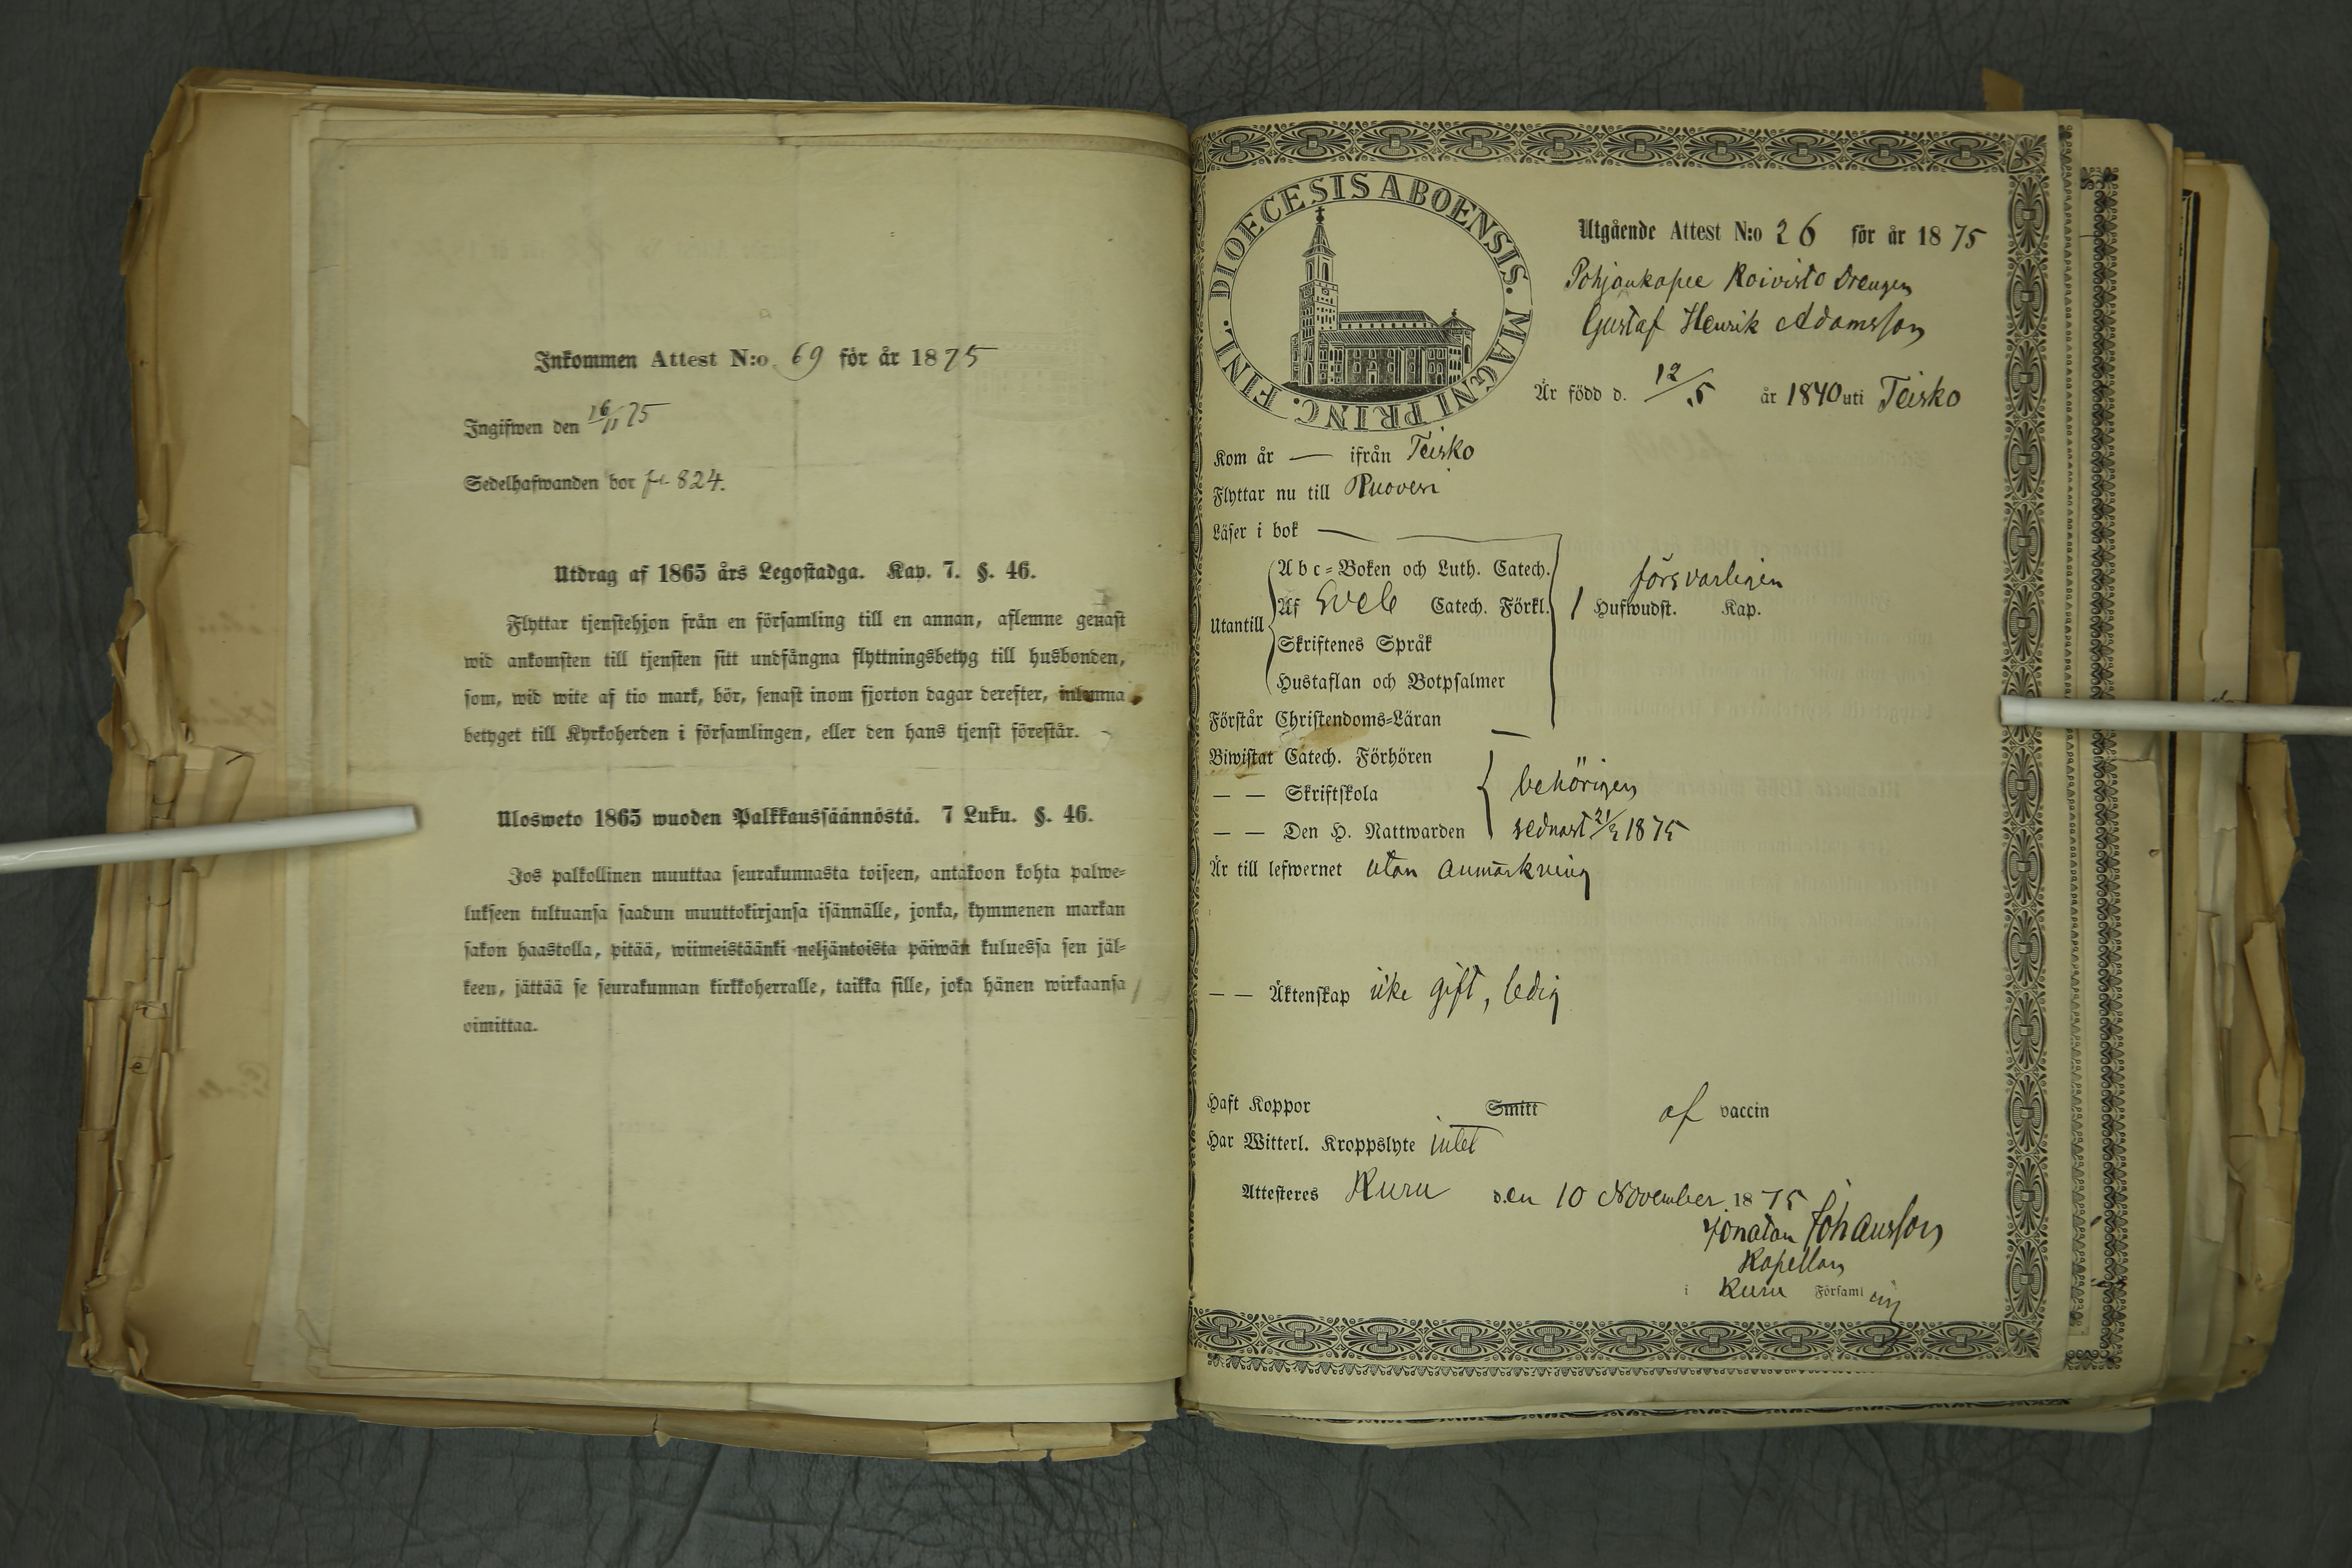 Inkommen Attest N:o 69 för år 1875
Ingifwen den 16/11 75
Sedelhafwanden bor 824.
Utdrag af 1865 års Legostadga. Kap. 7. §. 46.
Flyttar tjenstehjon från en församling till en annan, aflemne genast
wid ankomsten till tjensten sitt undfångna flyttningsbetyg till husbonden,
som, wid wite af tio mark, bör, senast inom fjorton dagar derefter, inlemna
betyget till Kyrkoherden i församlingen, eller den hans tjenst förestår.
Ulosweto 1865 wuoden Palkkaussäännöstä. 7 Luku. §. 46.
Jos palkollinen muuttaa seurakunnasta toiseen, antakoon kohta palwe-
lukseen tultuansa saadun muuttokirjansa isännälle, jonka, kymmenen markan
sakon haastolla, pitää, wiimeistäänki neljäntoista päiwän kuluessa sen jäl-
keen, jättää se seurakunnan kirkkoherralle, taikka sille, joka hänen wirkaansa
oimittaa.
DIOECESIS ABOENSIS. MAGNI PRINC. FINL.
Utgående Attest N:o 26 för år 1875
Pohjankapee Koivisto Drengen
Gustaf Henrik Adamsson
Är född d. 12/5 år 1840 uti Teisko
Kom år — ifrån Teisko
Flyttar nu till Ruovesi
Läser i bok —
Utantill
Abc-Boken och Luth. Catech.
Af Sveb Catech. Förkl. / Hufwudst. Kap.
försvarligen
Skriftenes Språk
Hustaflan och Botpsalmer
Förstår Christendoms-Läran
Biwistat Catech. Förhören
— — Skriftskola behörigen
— — Den H. Nattwarden sednast 21/2 1875
Är till lefwernet utan anmärkning
— — Äktenskap icke gift, ledig
Haft Koppor Smitt af vaccin
Har Witterl. Kroppslyte intet
Attesteres Kuru den 10 November 1875
Jonatan Johansson
Kapellan
i Kuru Församling